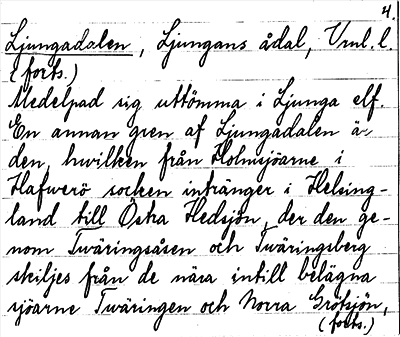 4.
Ljungadalen, Ljungans ådal, Vnl. l.
(forts.)
Medelpad sig uttömma i Ljunga elf.
En annan gren af Ljungadalen är
den, hwilken från Holmsjöarne i
Hafwerö socken intränger i Helsing-
land till Östra Hedsjön, der den ge-
nom Twäringsåsen och Twäringsberg
skiljes från de nära intill belägna
sjöarne Twäringen och Norra Grötsjön,
(forts.)